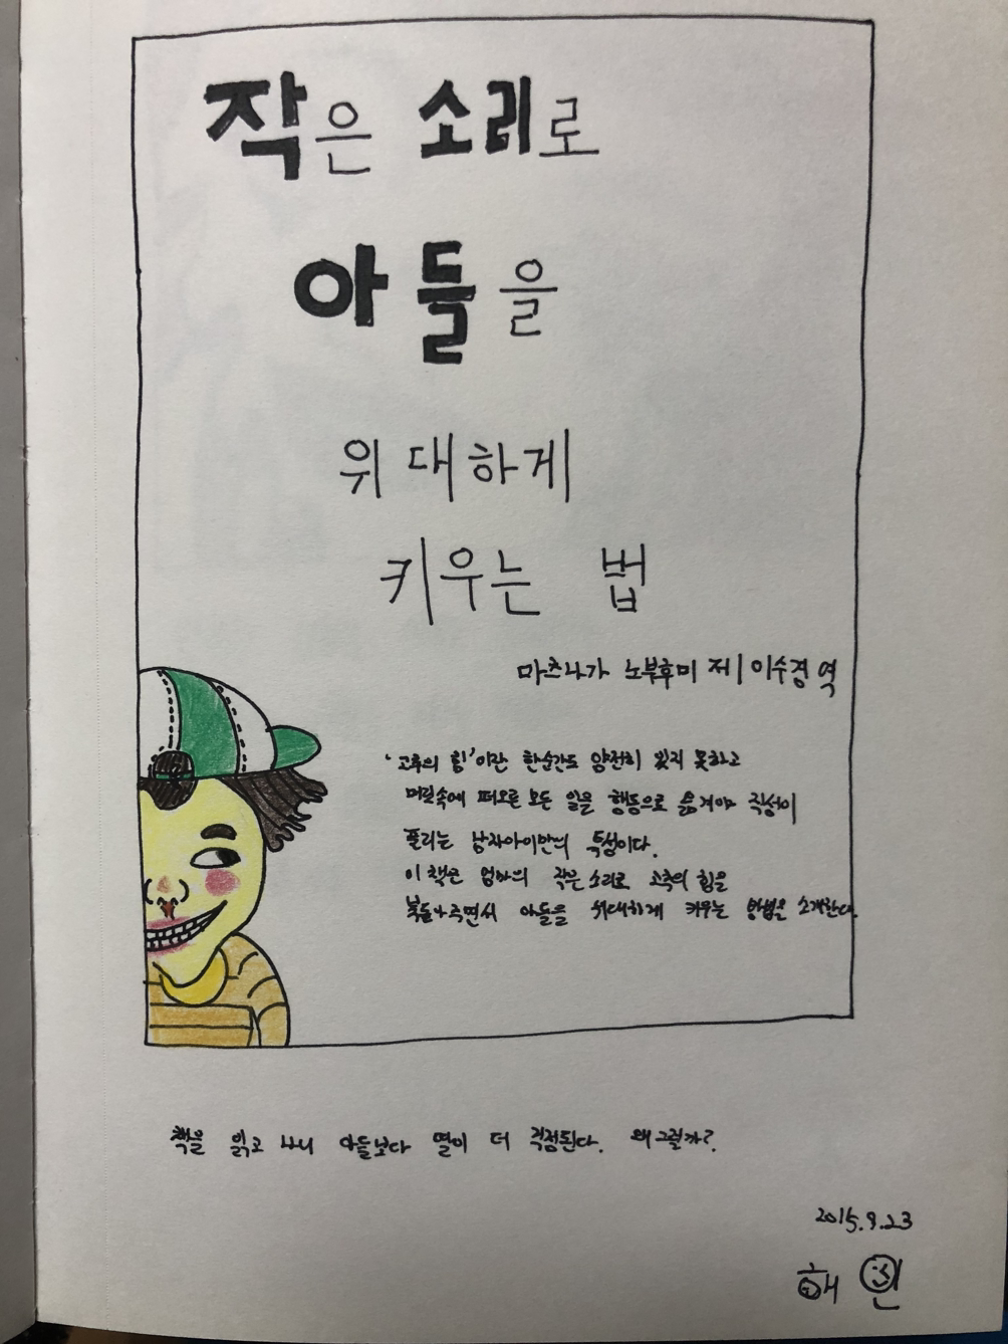 작은 소리로
아들을
위대하게
키우는 법
마츠나가 노부후미 저 | 이수경 역
'고추의 힘'이란 한순간도 얌전히 있지 못하고
머릿속에 떠오른 모든 일을 행동으로 옮겨야 직성이
풀리는 남자아이만의 특성이다.
이 책은 엄마의 작은 소리로 고추의 힘을
북돋아주면서 아들을 위대하게 키우는 방법을 소개한다.
책을 읽고 나니 아들보다 딸이 더 걱정된다. 왜 그럴까?
2015.9.23